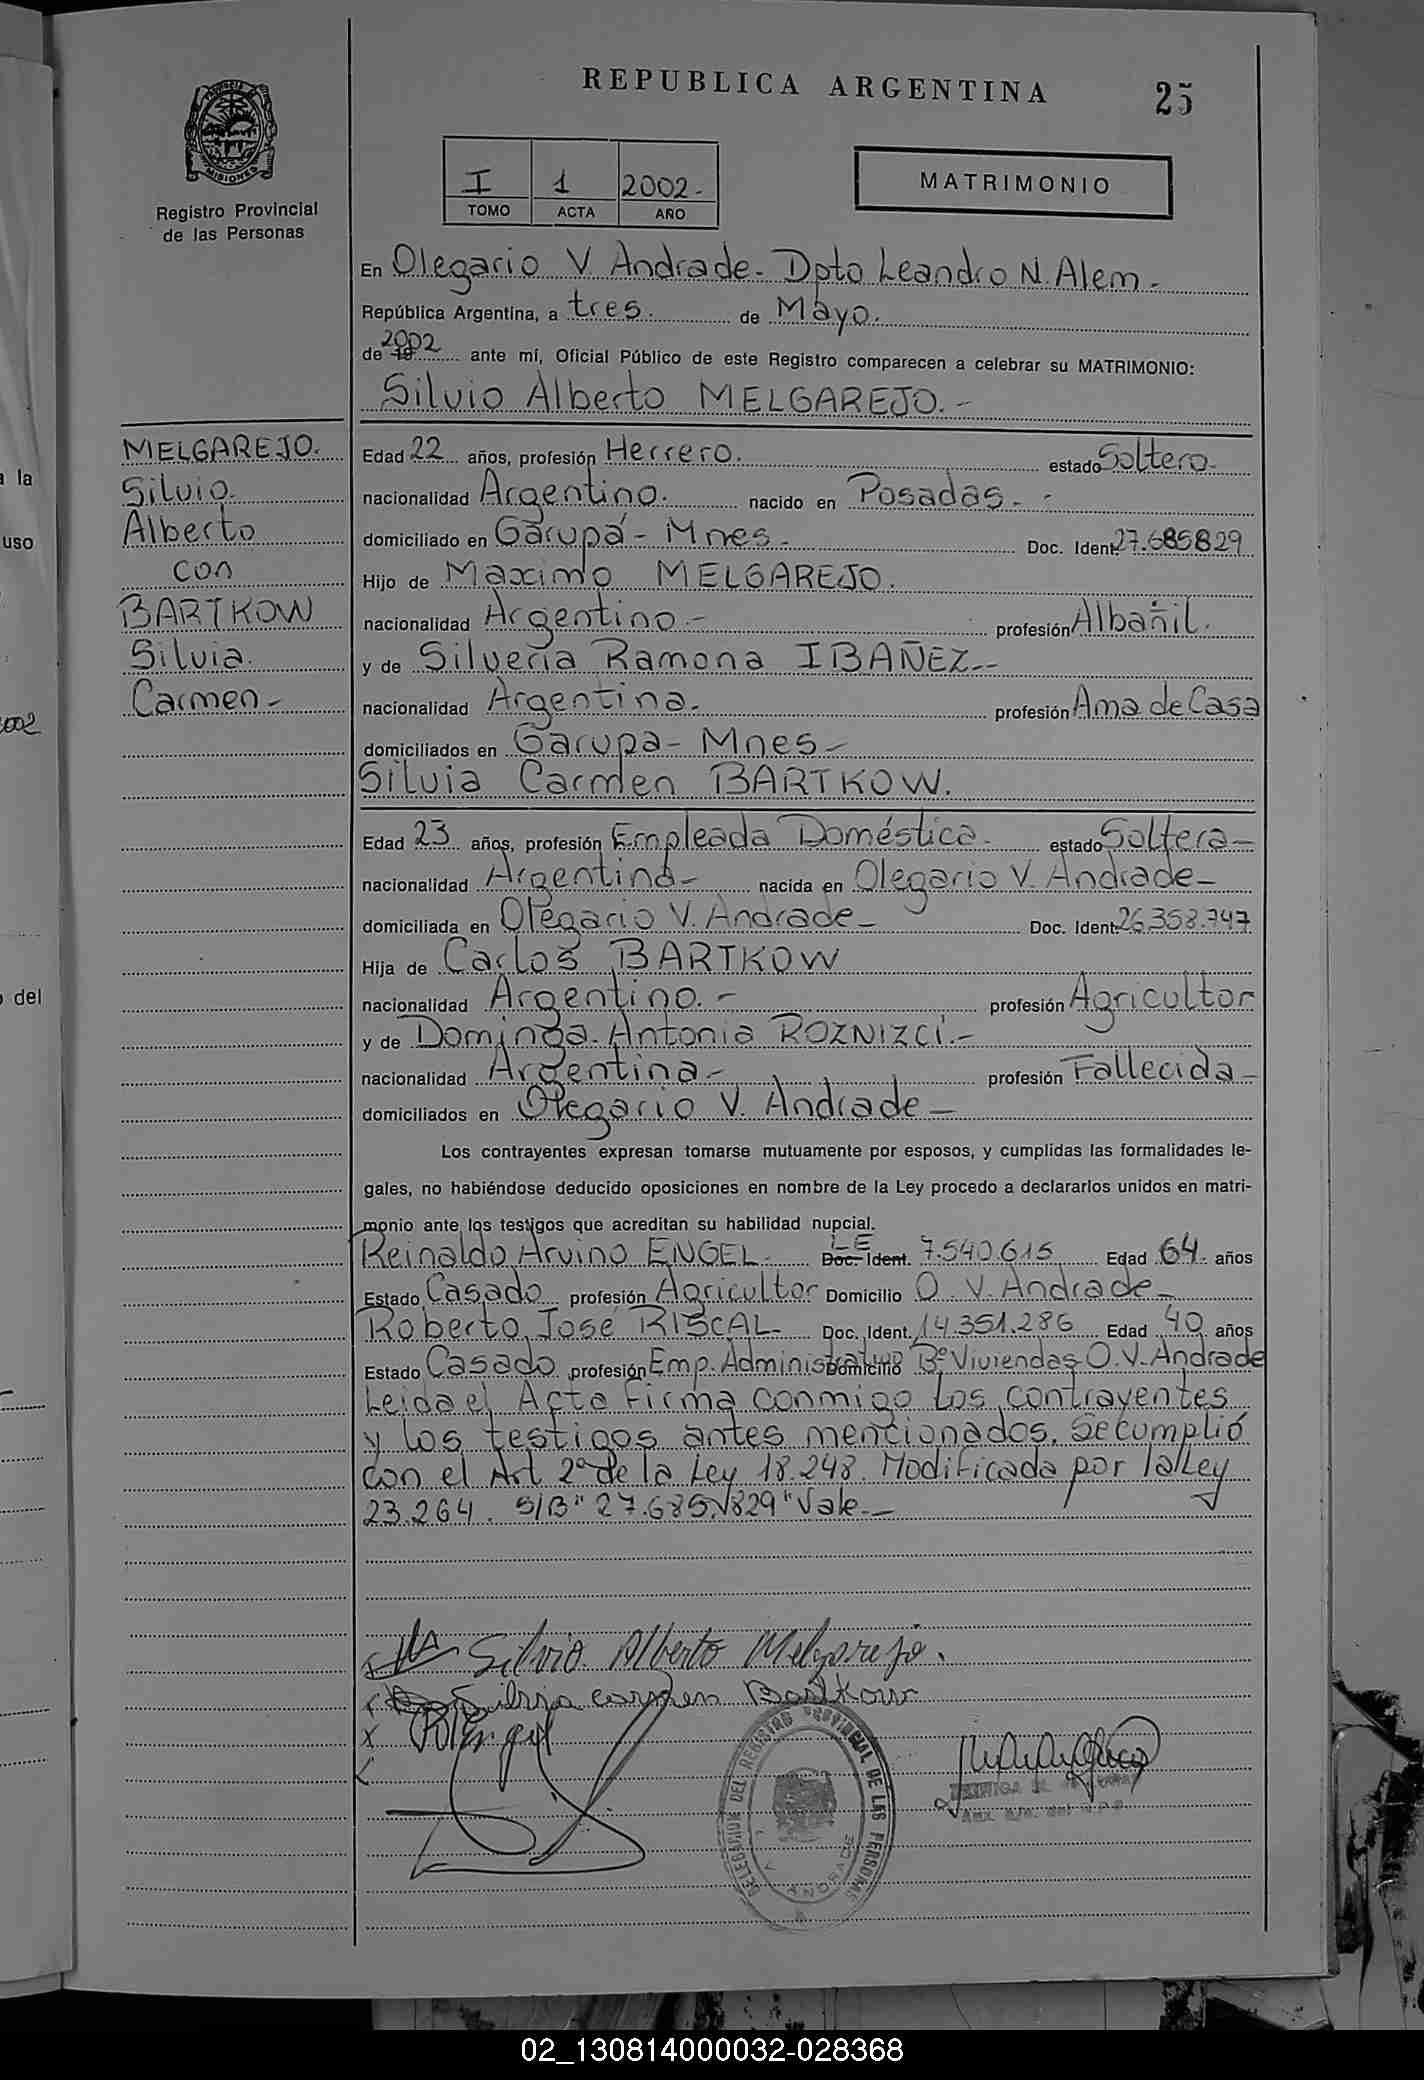 REPUBLICA ARGENTINA
25
PROVINCIA DE MISIONES
Registro Provincial
de las Personas
I 1 2002.-
TOMO ACTA AÑO
MATRIMONIO
En Olegario V Andrade.- Dpto Leandro N. Alem.-
República Argentina, a tres. de Mayo.
de 19 2002 ante mí, Oficial Público de este Registro comparecen a celebrar su MATRIMONIO:
Silvio Alberto MELGAREJO.-
MELGAREJO.
Silvio.
Alberto
con
BARTKOW
Silvia.
Carmen.-
Edad 22 años, profesión Herrero. estado Soltero.
nacionalidad Argentino. nacido en Posadas.-
domiciliado en Garupá - Mnes.- Doc. Ident. 27.685829
Hijo de Maximo MELGAREJO.
nacionalidad Argentino.- profesión Albañil.
y de Silveria Ramona IBAÑEZ.-
nacionalidad Argentina. profesión Ama de Casa
domiciliados en Garupa - Mnes.-
Silvia Carmen BARTKOW.
Edad 23 años, profesión Empleada Doméstica. estado Soltera-
nacionalidad Argentina- nacida en Olegario V. Andrade-
domiciliada en Olegario V. Andrade- Doc. Ident. 26.358.747
Hija de Carlos BARTKOW
nacionalidad Argentino.- profesión Agricultor
y de Dominga Antonia ROZNIZCI.-
nacionalidad Argentina- profesión Fallecida-
domiciliados en Olegario V. Andrade-
Los contrayentes expresan tomarse mutuamente por esposos, y cumplidas las formalidades le-
gales, no habiéndose deducido oposiciones en nombre de la Ley procedo a declararlos unidos en matri-
monio ante los testigos que acreditan su habilidad nupcial.
Reinaldo Arvino ENGEL- Doc. LE Ident. 7.540.615 Edad 64 años
Estado Casado profesión Agricultor Domicilio O. V. Andrade-
Roberto José RISCAL- Doc. Ident. 14.351.286 Edad 40 años
Estado Casado profesión Emp. Administrativo Domicilio Bº Viviendas O.V. Andrade
Leida el Acta firma conmigo los contrayentes
y los testigos antes mencionados. Se cumplió
con el Art 2º de la Ley 18.248. Modificada por la Ley
23.264. S/B "27.685.829" Vale.-
Silvio Alberto Melgarejo.
Silvia carmen Bartkow
DELEGACION DEL REGISTRO PROVINCIAL DE LAS PERSONAS
ANDRADE
a la
uso
2002
o del
02_130814000032-028368